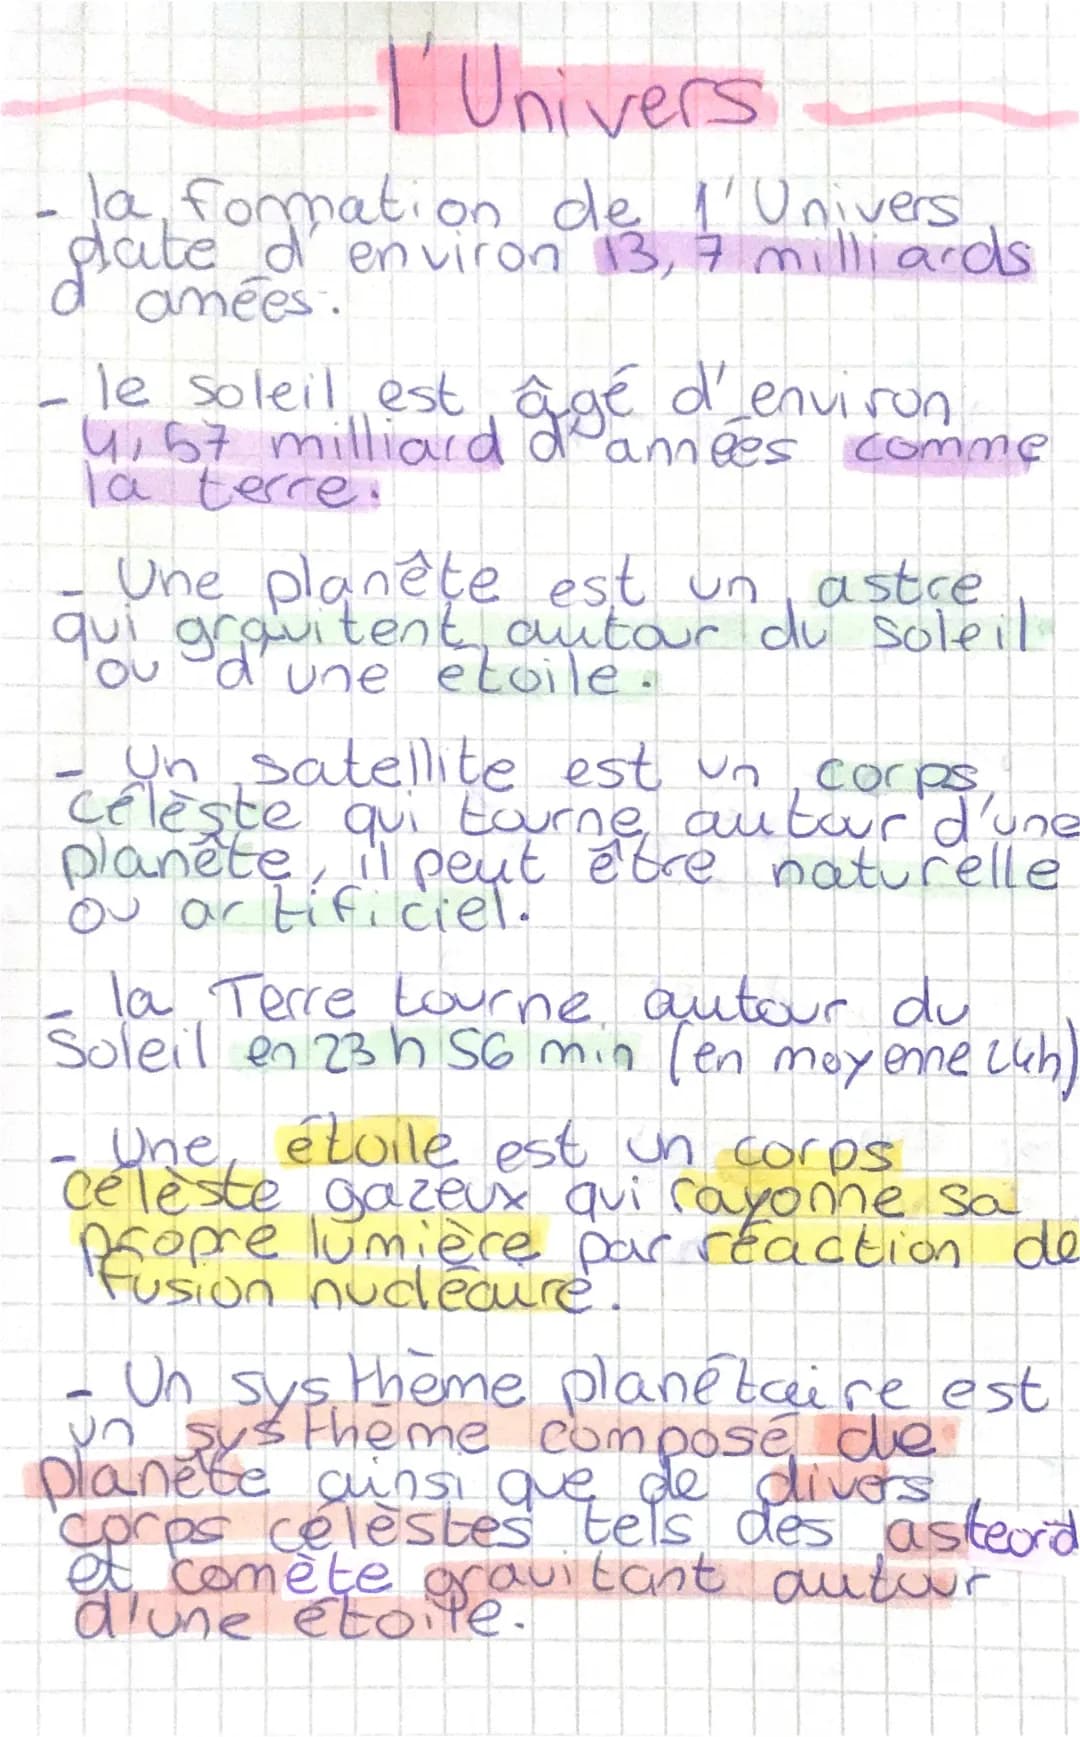 l'Univers
- la formation de l'Univers
date d'environ 13,7 milliards
d'années.
- le soleil est âgé d'environ
4,57 milliard d'années comme
la terre.
- Une planête est un astre
qui gravitent autour du soleil
ou d'une étoile.
- Un satellite est un corps
célèste qui tourne autour d'une
planête, il peut être naturelle
ou artificiel.
- la Terre tourne autour du
Soleil en 23h 56 min (en moyenne 24h)
- Une étoile est un corps
célèste gazeux qui rayonne sa
propre lumière par réaction de
fusion nucléaire.
- Un systhème planétaire est
un systhème composé de
planète ainsi que de divers
corps célèstes tels des asteord
et comète gravitant autour
d'une étoile.